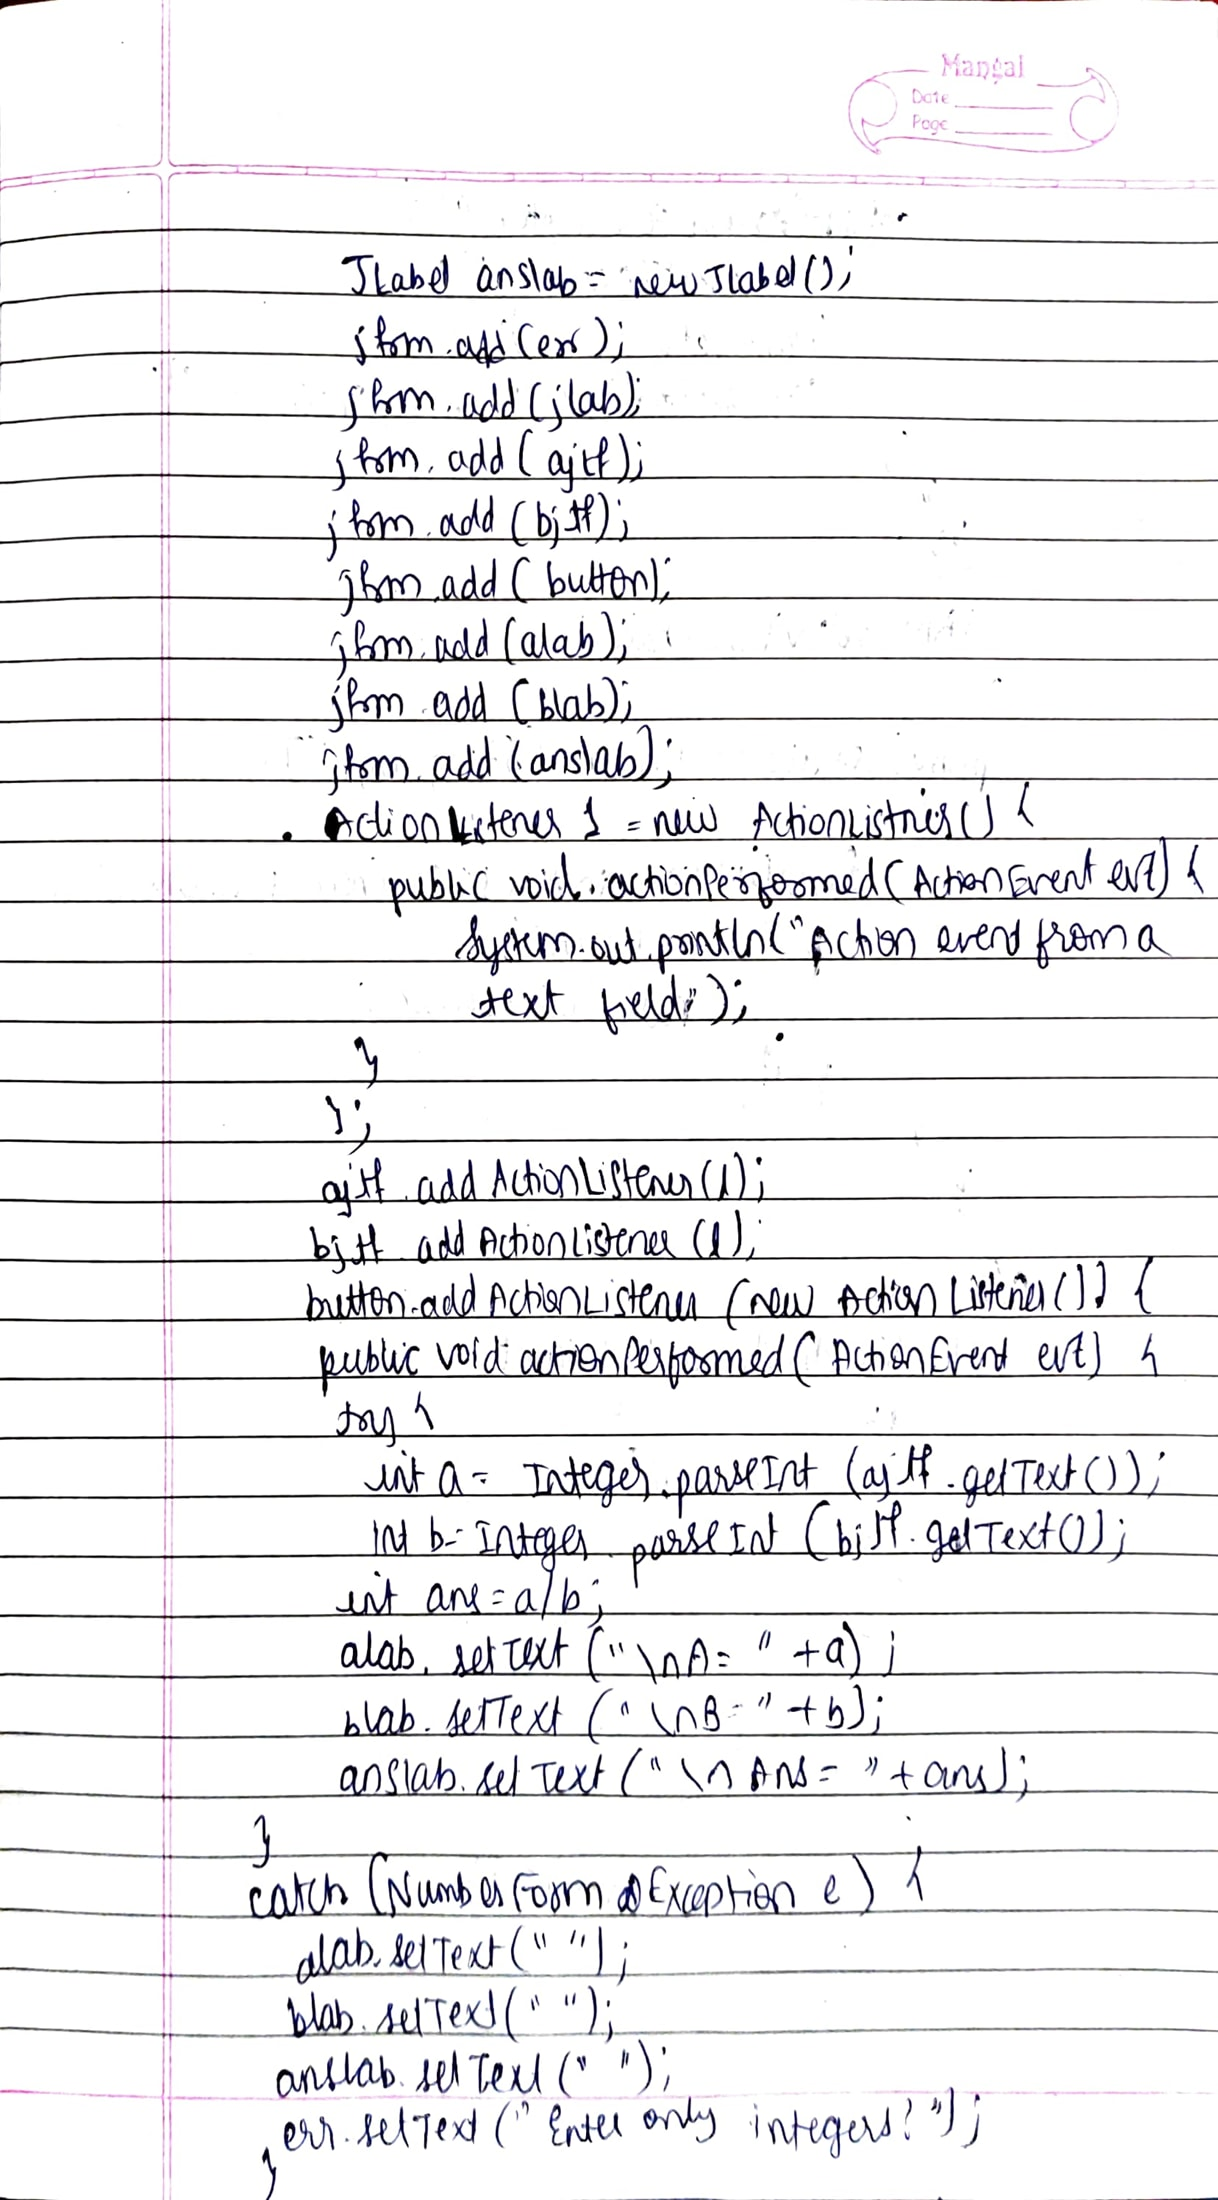 Mangal
Date
Page
JLabel anslab = new JLabel();
jfrm.add(err);
jfrm.add(jlab);
jfrm.add(ajtf);
jfrm.add(bjtf);
jfrm.add(button);
jfrm.add(alab);
jfrm.add(blab);
jfrm.add(anslab);
ActionListener l = new ActionListner() {
public void actionPerformed(ActionEvent evt) {
System.out.println("Action event from a
text field");
}
};
ajtf.addActionListener(l);
bjtf.addActionListener(l);
button.addActionListener(new ActionListener()) {
public void actionPerformed(ActionEvent evt) {
try {
int a = Integer.parseInt(ajtf.getText());
int b = Integer.parseInt(bjtf.getText());
int ans = a/b;
alab.setText("\nA= " +a);
blab.setText("\nB= " +b);
anslab.setText("\nAns = " + ans);
}
catch (NumberFormatException e) {
alab.setText(" ");
blab.setText(" ");
anslab.setText(" ");
err.setText("Enter only integers!");
}